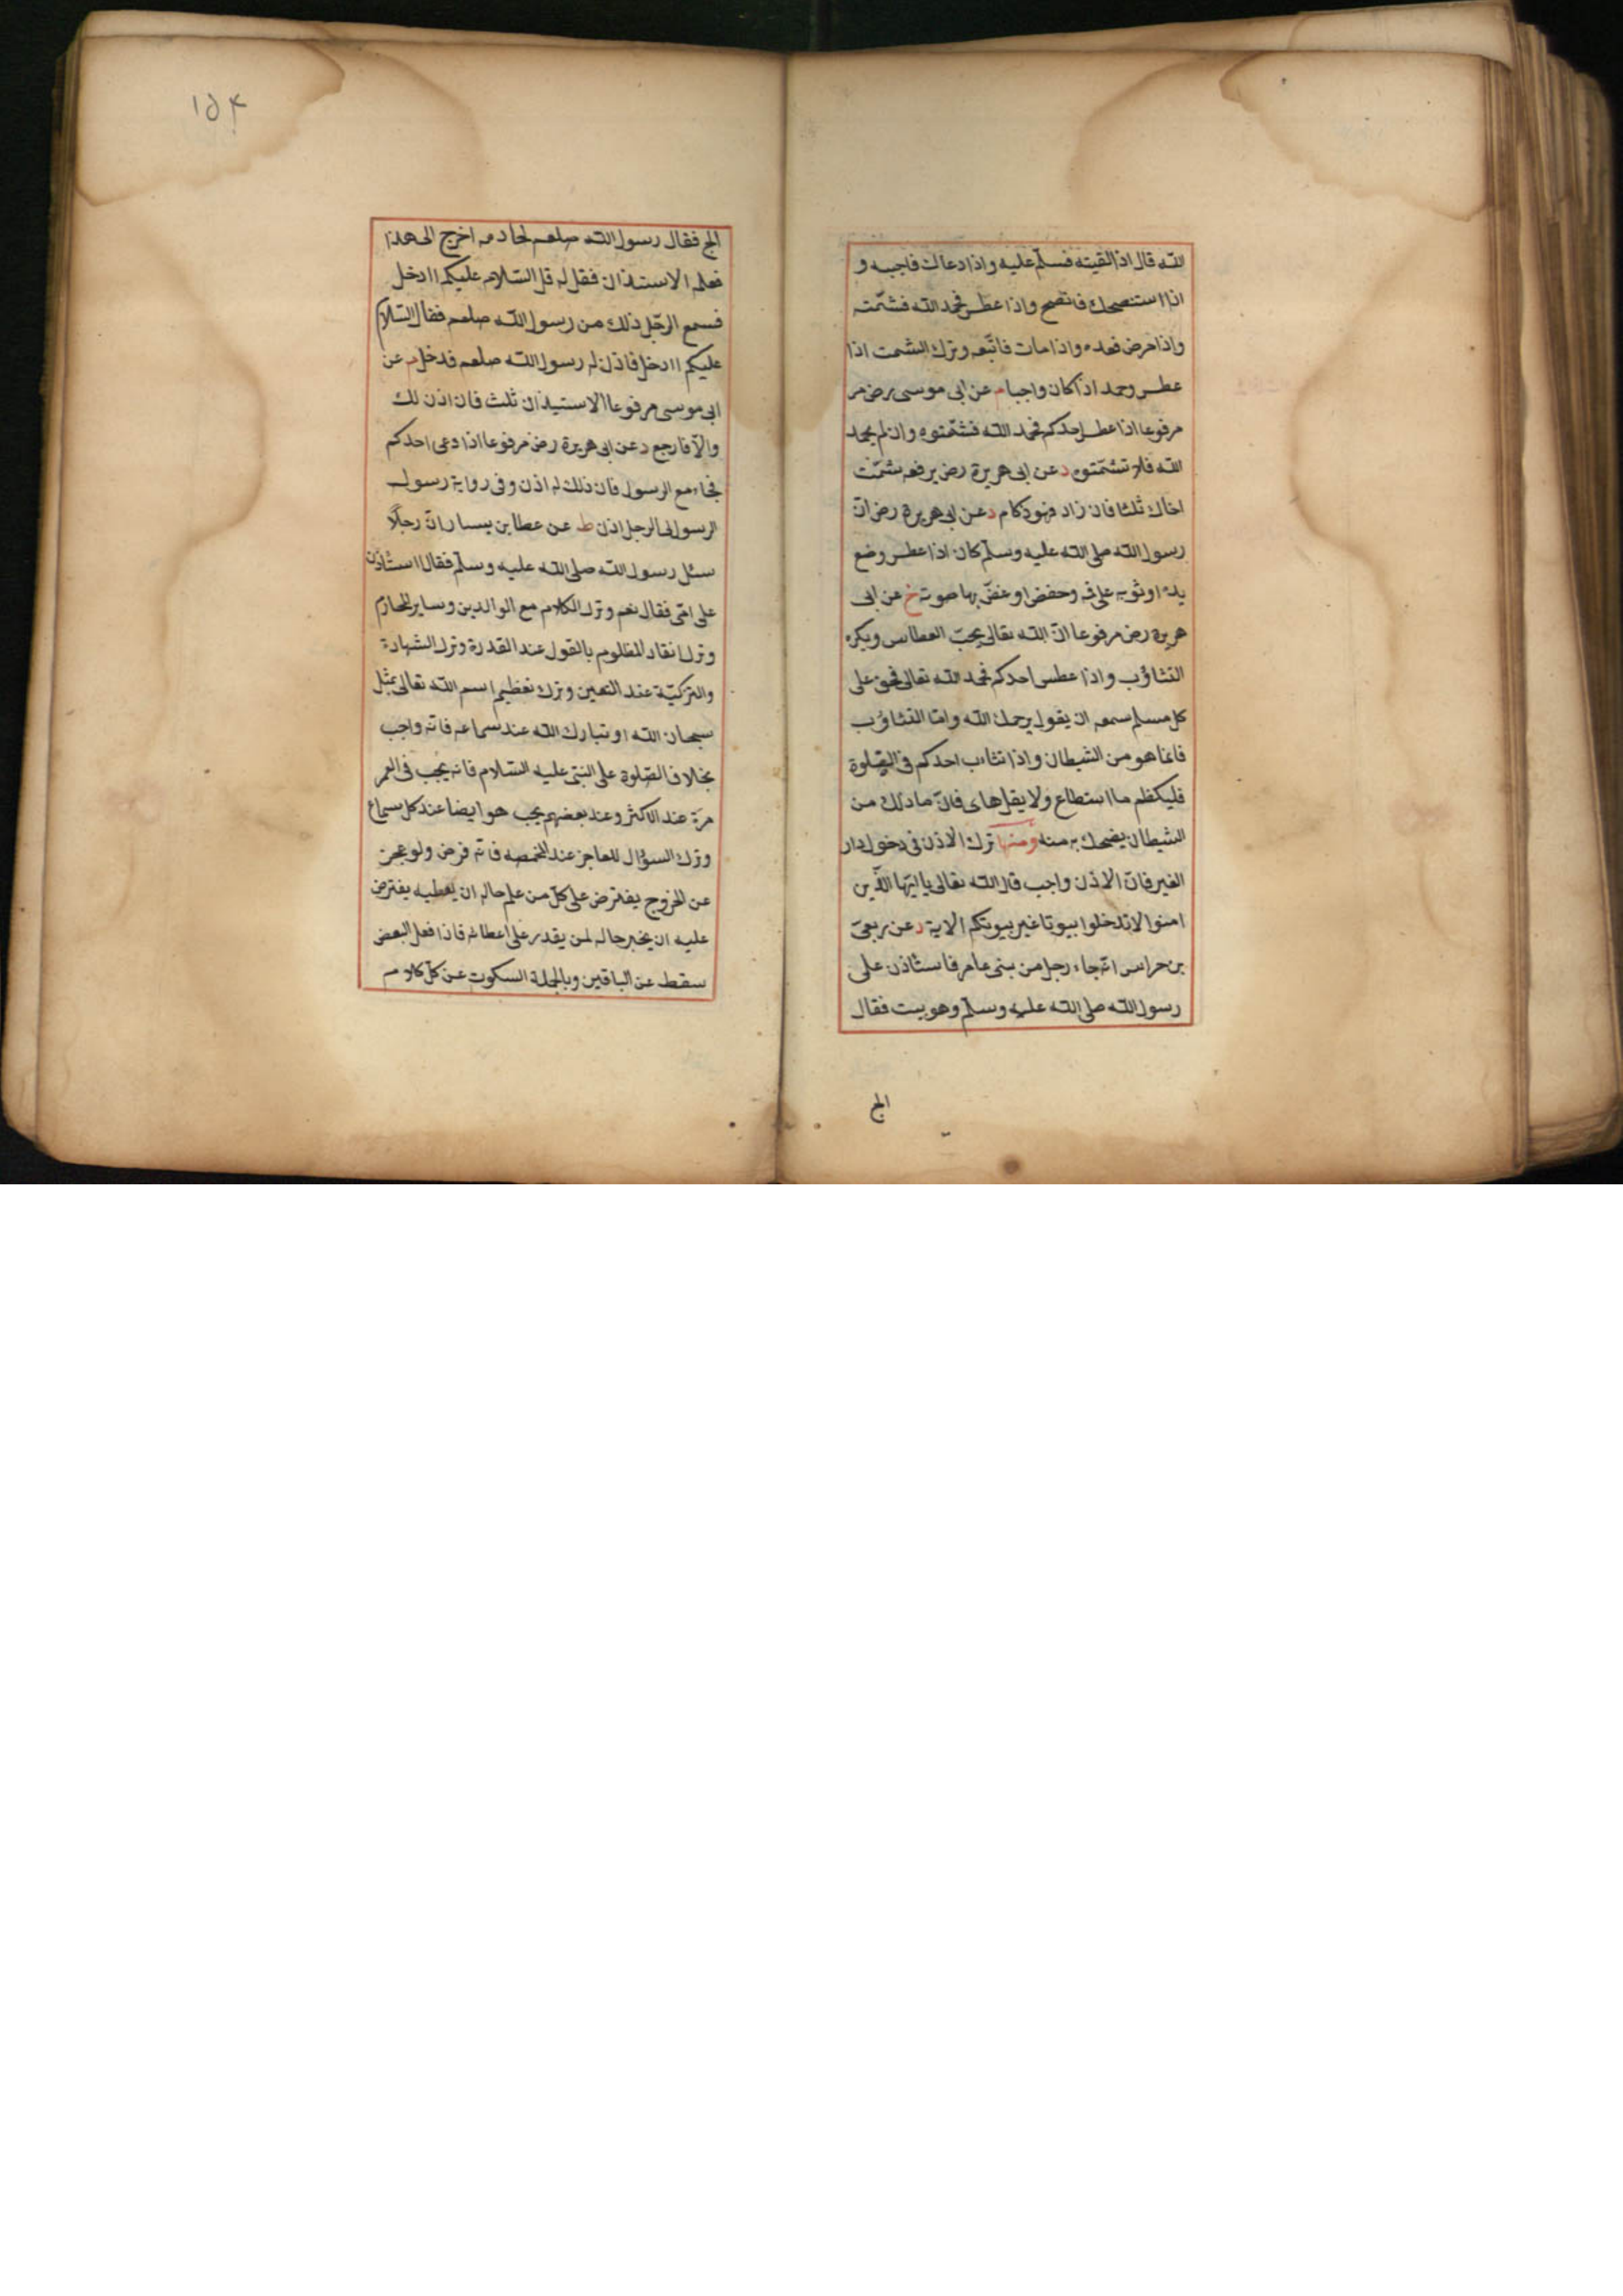 الله قال اذا لقيته فسلم عليه واذا دعاك فاجبه و
اذا استنصحك فانصح واذا عطس فحمد الله فشمّته
واذا مرض فعده واذا مات فاتبعه وترك التشمت اذا
عطس وحمد اذا كان واجبا م عن ابى موسى رض مر
مرفوعا اذا عطس احدكم فحمد الله فشمّتوه وان لم يحمد
الله فلا تشمّتوه د عن ابى هريرة رض يرفعه شمّت
اخاك ثلثا فان زاد فهو زكام د عن ابى هريرة رض ان
رسول الله صلى الله عليه وسلم كان اذا عطس وضع
يده او ثوبه على فيه وخفض او غضّ بها صوته خ عن ابى
هريرة رض مرفوعا انّ الله تعالى يحبّ العطاس ويكره
التثاؤب واذا عطس احدكم فحمد الله تعالى فحق على
كل مسلم سمعه ان يقول يرحمك الله وامّا التثاؤب
فانما هو من الشيطان واذا تثاءب احدكم فى الصّلوة
فليكظم ما استطاع ولا يقل هاى فانّ ما ذلك من
الشيطان يضحك به منه ومنها ترك الاذن فى دخول دار
الغير فانّ الاذن واجب قال الله تعالى يا ايّها الّذين
امنوا لا تدخلوا بيوتا غير بيوتكم الاية د عن ربعىّ
بن حراس انّه جاء رجل من بنى عامر فاستأذن على
رسول الله صلى الله عليه وسلم وهو بيت فقال
الج
١٥٤
الج فقال رسول الله صلعم لخادمه اخرج الى هذا
فعلمه الاستيذان فقل له قل السّلام عليكم اادخل
فسمع الرجل ذلك من رسول الله صلعم فقال السّلام
عليكم اادخل فاذن له رسول الله صلعم فدخل م عن
ابى موسى مرفوعا الاستيذان ثلث فان اذن لك
والّا فارجع د عن ابى هريرة رض مرفوعا اذا دعى احدكم
فجاء مع الرسول فان ذلك له اذن وفى رواية رسول
الرسول الى الرجل اذن ط عن عطا بن يسار انّ رجلًا
سئل رسول الله صلى الله عليه وسلم فقال استأذن
على امّى فقال نعم وترك الكلام مع الوالدين وساير المحارم
وترك انقاد المظلوم بالقول عند القدرة وترك الشهادة
والتزكيّة عند التعين وترك تعظيم اسم الله تعالى بمثل
سبحان الله او تبارك الله عند سماعه فانه واجب
بخلاف الصّلوة على النبىّ عليه السّلام فانه يجب فى العمر
مرّة عند الاكثر وعند بعضهم يجب هو ايضا عند كل سماع
وترك السؤال للعاجز عند المخمصه فانه فرض ولو عجز
عن الخروج يفترض على كلّ من علم حاله ان يعطيه يفترض
عليه ان يخبر حاله لمن يقدر على اعطائه فاذا فعل البعض
سقط عن الباقين وبالجملة السكوت عن كلّ كلام